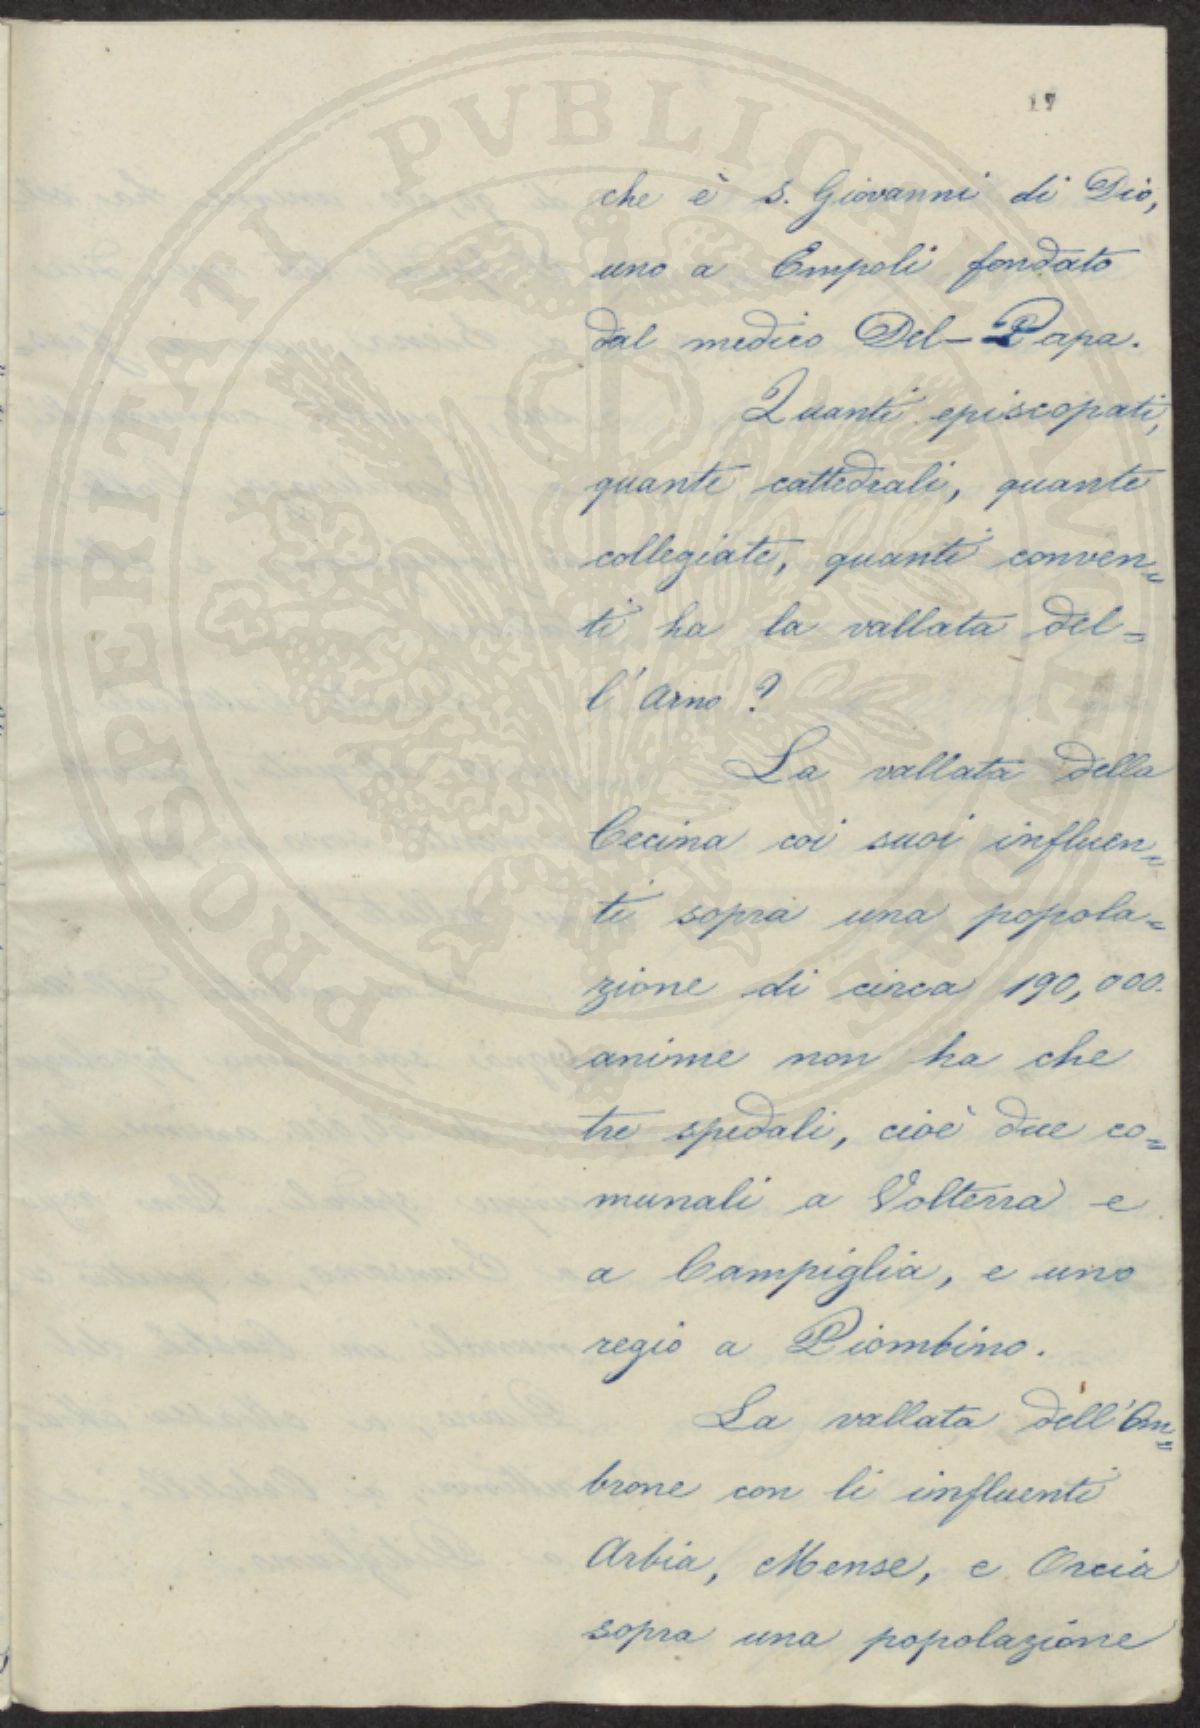 PROSPERITATI PVBLICAE AVGENDAE
17
che è S. Giovanni di Dio,
uno a Empoli fondato
dal medico Del-Papa.
Quanti episcopati,
quante cattedrali, quante
collegiate, quanti conven=
ti ha la vallata del=
l'Arno?
La vallata della
Cecina coi suoi influen=
ti sopra una popola=
zione di circa 190,000.
anime non ha che
tre spedali, cioè due co=
munali a Volterra e
a Campiglia, e uno
regio a Piombino.
La vallata dell'Om=
brone con li influenti
Arbia, Mense, e Orcia
sopra una popolazione